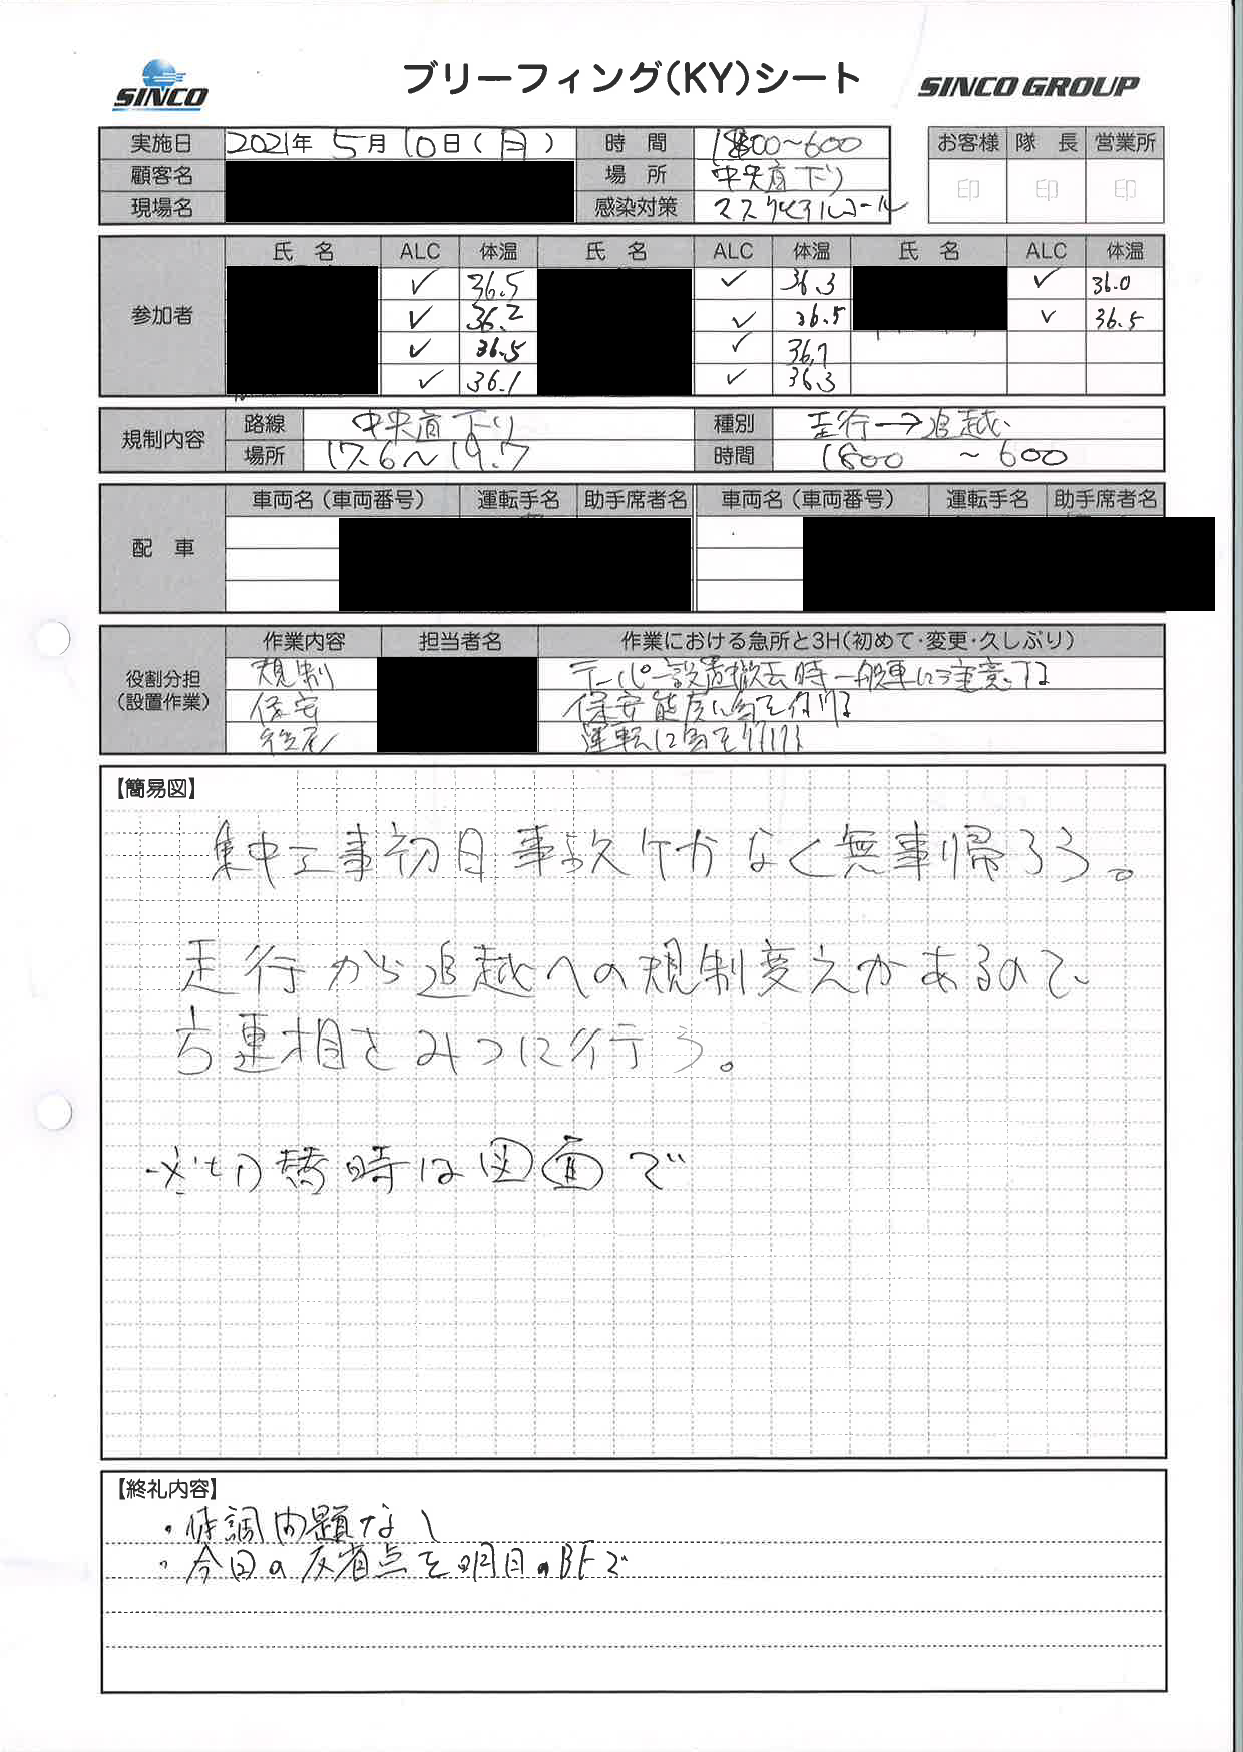 SINCO
ブリーフィング(KY)シート
SINCO GROUP
実施日 2021年 5月 10日(月) 時 間 1800〜600
顧客名 場 所 中央道下り
現場名 感染対策 マスク アルコール
お客様 隊 長 営業所
印 印 印
参加者
氏 名 ALC 体温 氏 名 ALC 体温 氏 名 ALC 体温
✓ 36.5 ✓ 36.3 ✓ 36.0
✓ 36.2 ✓ 36.5 ✓ 36.5
✓ 36.5 ✓ 36.7
✓ 36.1 ✓ 36.3
規制内容
路線 中央道 下り 種別 走行→追越
場所 17.6〜19.7 時間 1800 〜600
配 車
車両名(車両番号) 運転手名 助手席者名 車両名(車両番号) 運転手名 助手席者名
役割分担
(設置作業)
作業内容 担当者名 作業における急所と3H(初めて・変更・久しぶり)
規制 テーパー設置撤去時一般車に注意する
保安 保安態度に気を付ける
後尾 運転に気を付ける
【簡易図】
集中工事初日事故ケガなく無事帰ろう。
走行から追越への規制変えがあるので、
方連相をみつに行う。
※切替時は図面で
【終礼内容】
・体調問題なし
・今日の反省点を明日のBFで